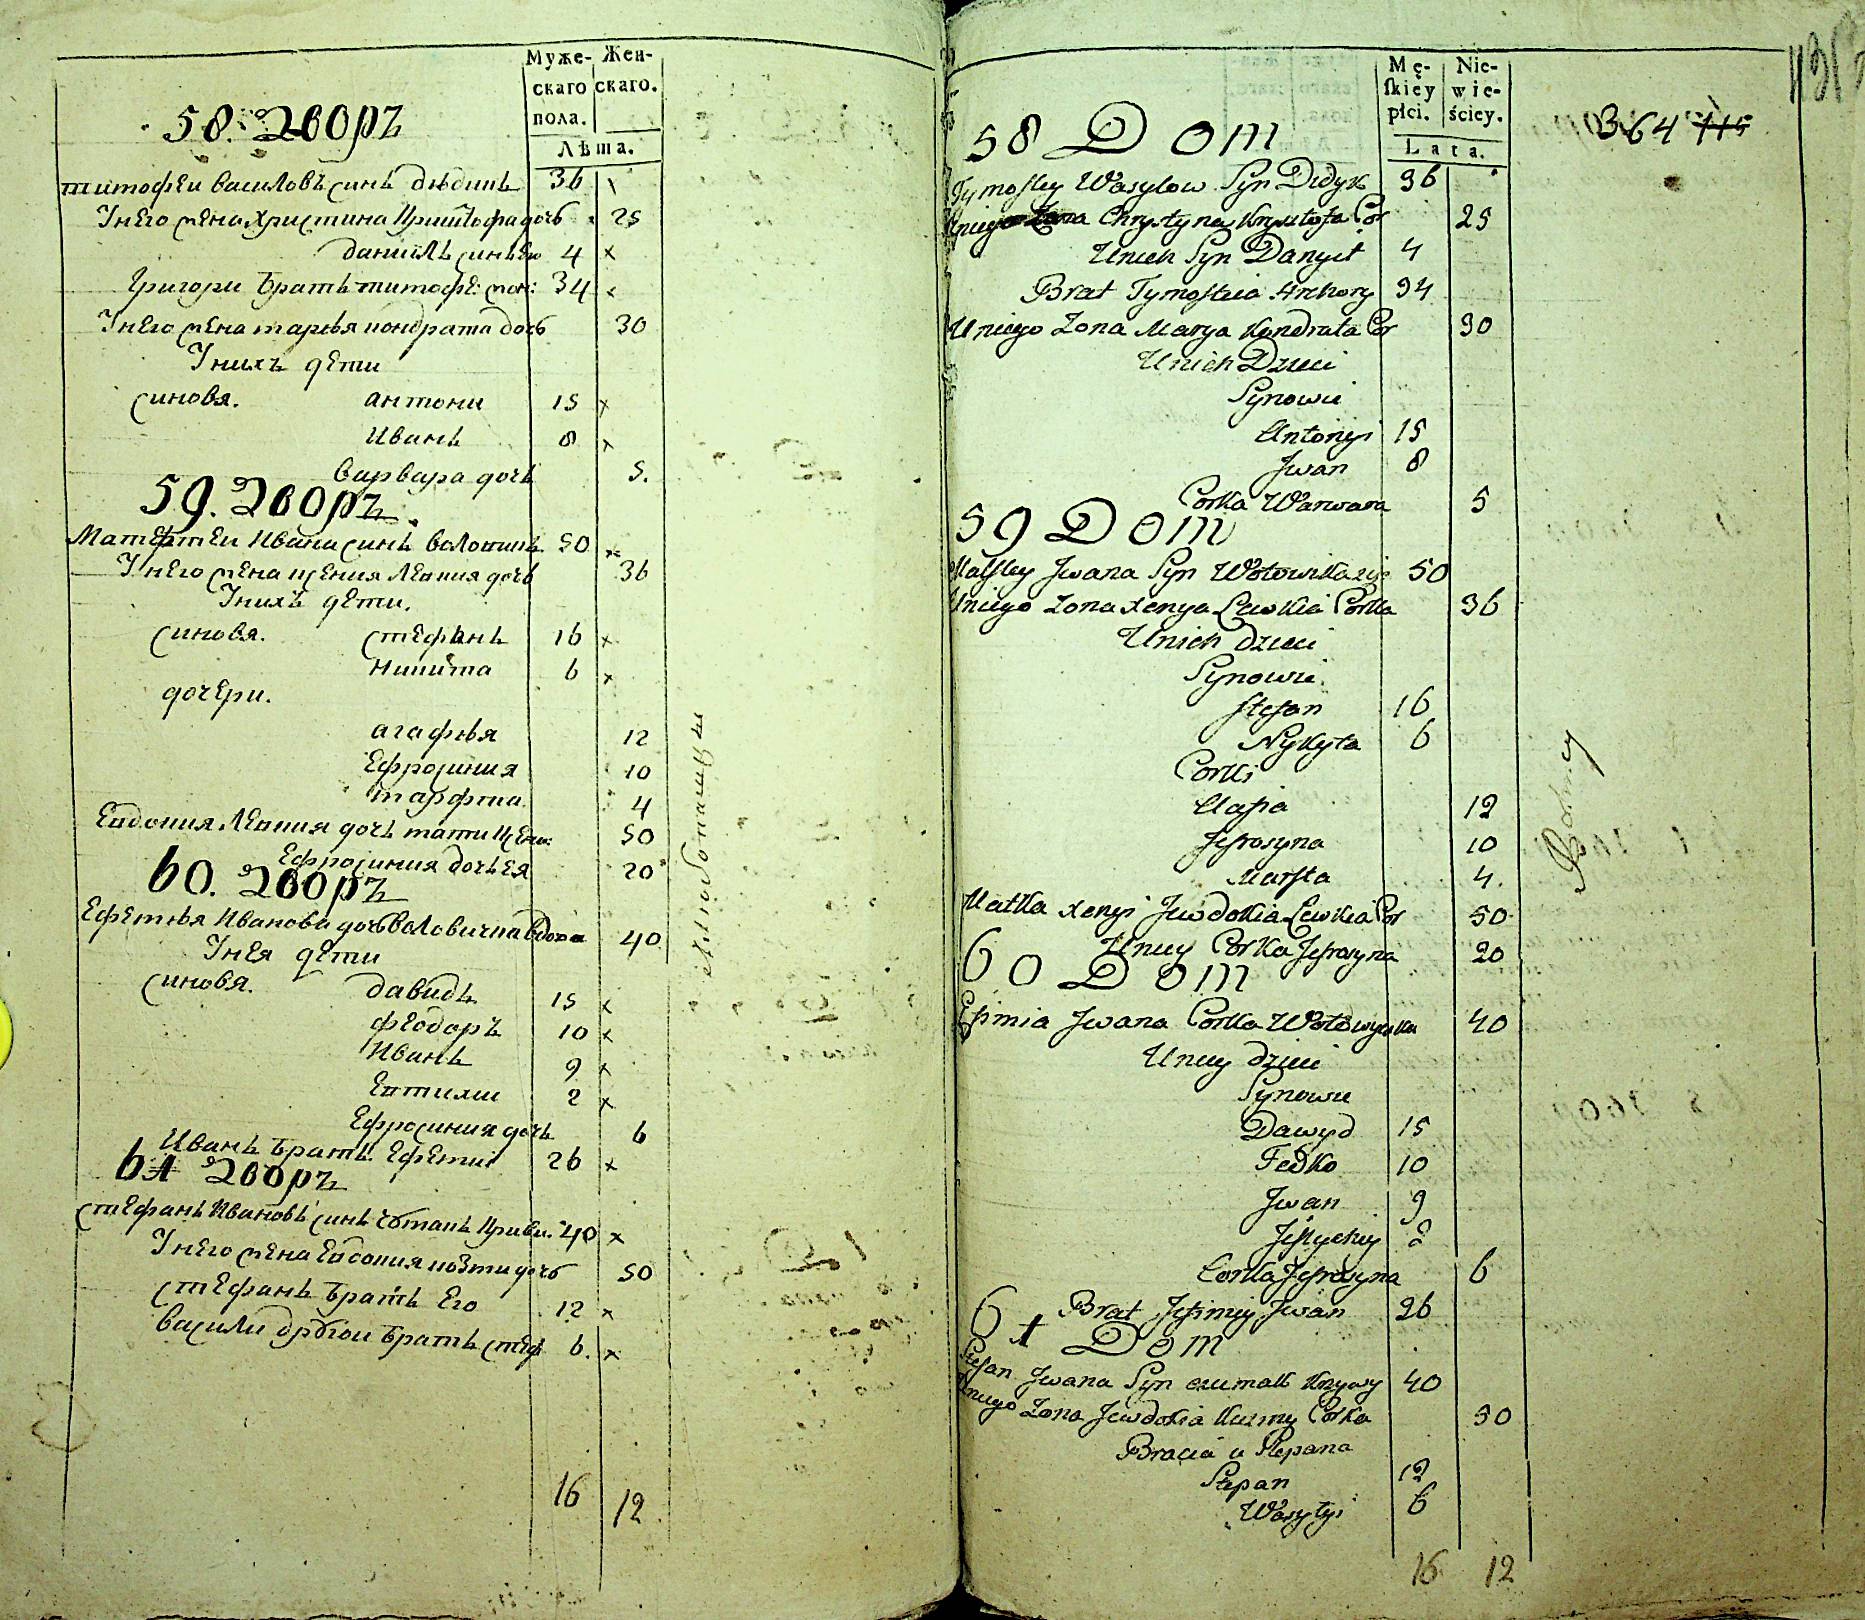 Муже- Жен-
скаго скаго.
пола.
Лѣта.
58. Дворъ
тимофеи василовъ синъ дѣдикъ 36
Унего жена христина криштофа дочъ 25
данилъ синъ Ею 4
Григори братъ тимофе: жон: 34
Унего жена марья кондрата дочъ 30
Унихъ дети
синовя. антони 15
Иванъ 8
варвара дочъ 5.
59. Дворъ
Матфеи Ивана синъ 50
Унего жена ксения левкия дочъ 36
Унихъ дети.
синовя. стефанъ 16
никита 6
дочери.
агафия 12
Ефросиния 10
марфта 4
Евдокия левкия дочъ мати 50
Ефросиния дочъ Ея 20
60. Дворъ
Ефемия Иванова дочъ воловичка вдова 40
Унея дети
синовя. давидъ 15
феодоръ 10
Иванъ 9
Евтихи 2
Ефросиния дочъ 6
Иванъ братъ Ефемии 26
61 Дворъ
стефанъ Ивановъ синъ чумакъ криви. 40
Унего жена Евдокия козми дочъ 50
стефанъ братъ Его 12
васили другои братъ стеф 6.
16 12
Mę- Nie-
skiey wie-
płci. ściey.
Lata.
364 115
58 Dom
Tymofiey Wasylow Syn Didyk 36
Uniego Zona Chrystyna Krysztofa Cor 25
Unich Syn Danyił 4
Brat Tymofieia Hrehory 34
Uniego Zona Marya Kondrata Cor 30
Unich Dzieci
Synowie
Antonyi 15
Jwan 8
Corka Warwara 5
59 Dom
Matfiey Jwana Syn 50
Uniego Zona Xenya Lewkia Corka 36
Unich dzieci
Synowie
Stefan 16
Nykyta 6
Corki
Aafia 12
Jefrosyna 10
Marfta 4.
Matka Xenyi Jewdokia Lewkia Cor 50
Uniey Corka Jefrosyna 20
60 Dom
Efimia Jwana Corka 40
Uniey dzieci
Synowie
Dawyd 15
Fedko 10
Jwan 9
2
Corka Jefrosyna 6
Brat Jefimiy Jwan 26
61 Dom
Stefan Jwana Syn czumak Krzywy 40
Uniego Zona Jewdokia Kuzmy Corka 50
Bracia u Stepana
Stepan 12
Wasylyi 6
16 12